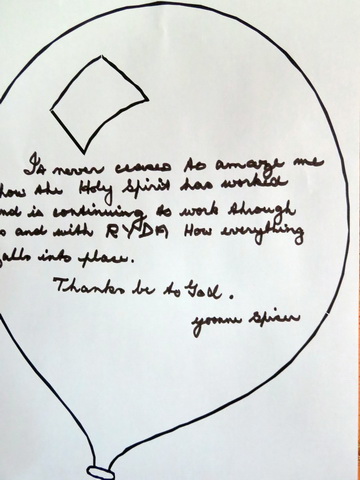 It never ceases to amaze me
how the Holy Spirit has worked
nd is continuing to work through
s and with RYDA How everything
alls into place.
Thanks be to God.
yvonne Spicer